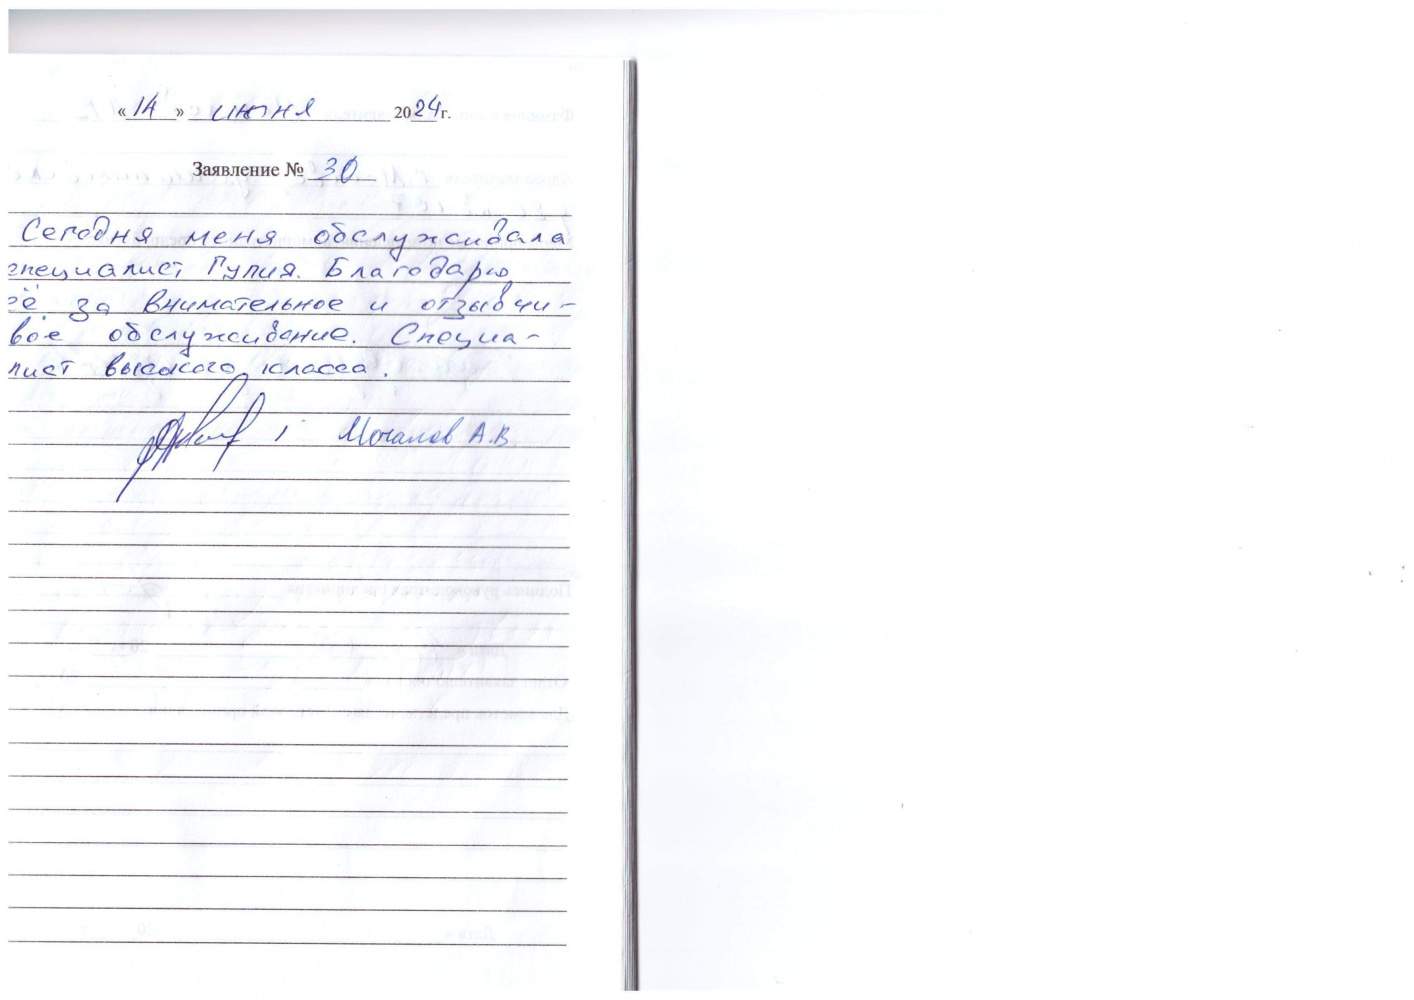 «14» июня 2024г.
Заявление № 30
Сегодня меня обслуживала
специалист Гулия. Благодарю
её за внимательное и отзывчи-
вое обслуживание. Специа-
лист высокого класса.
Мочалов А.В.